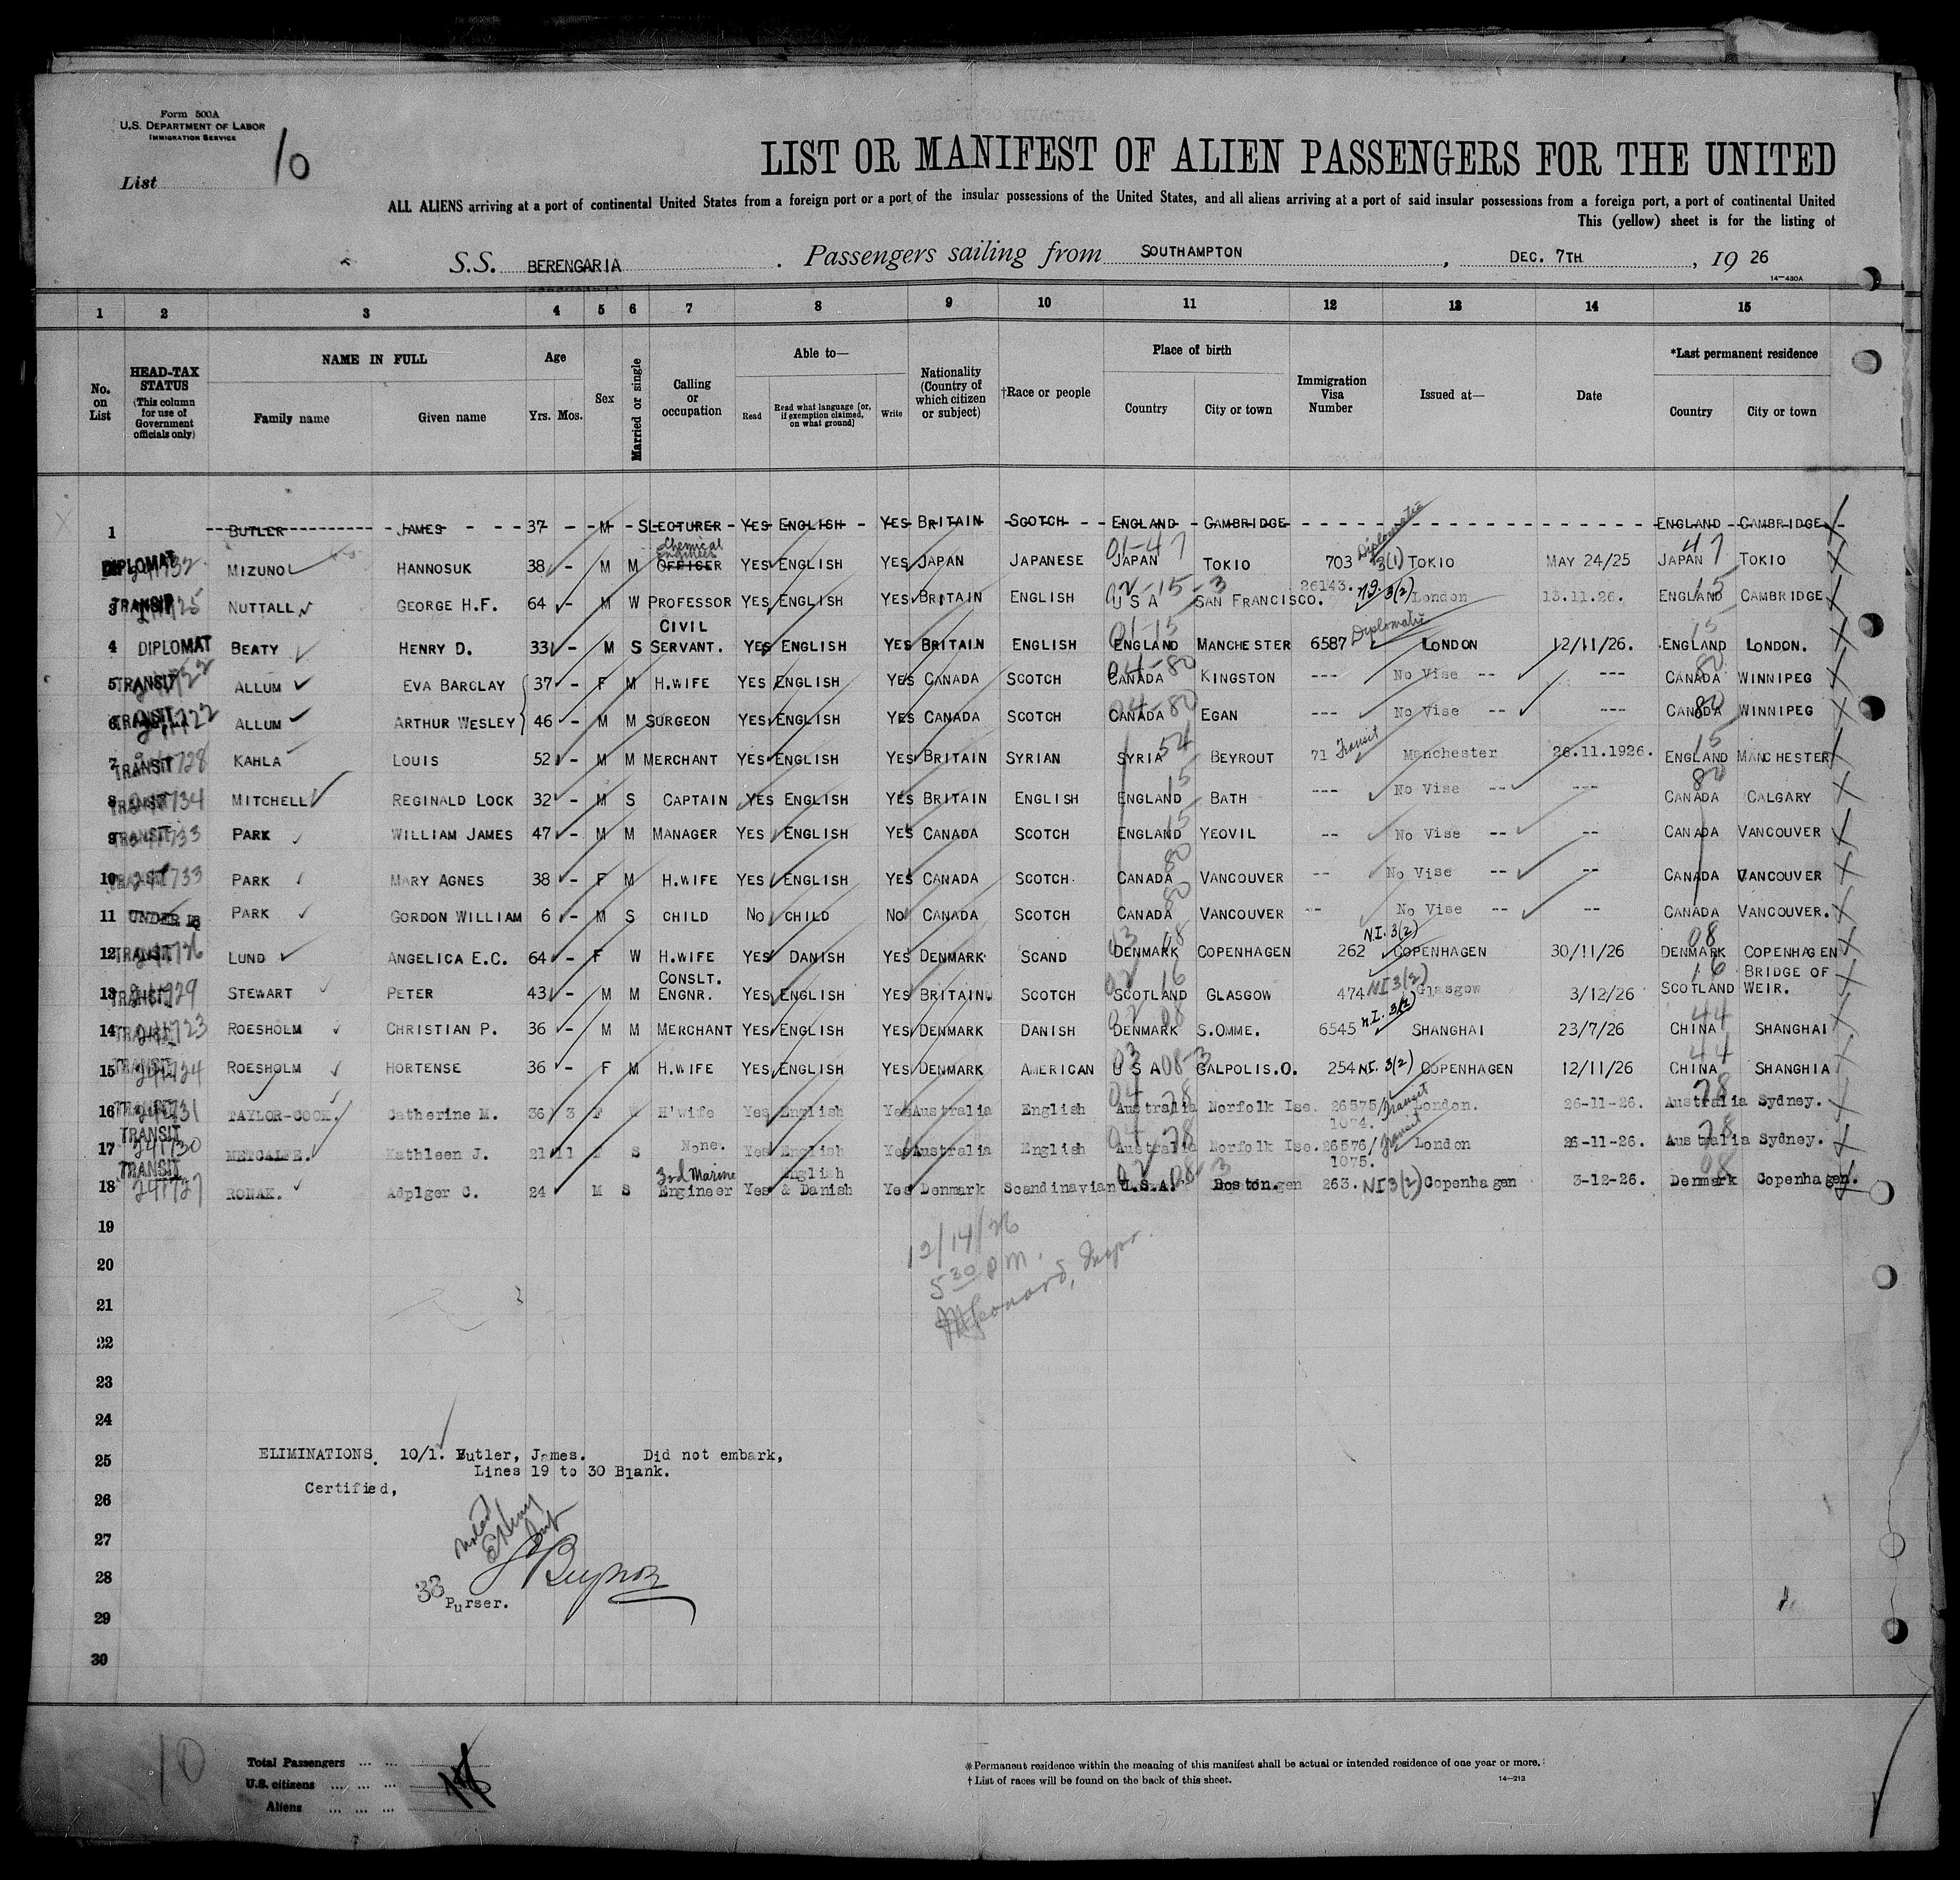 Form 500A
U.S. DEPARTMENT OF LABOR
IMMIGRATION SERVICE
List 10
LIST OR MANIFEST OF ALIEN PASSENGERS FOR THE UNITED
ALL ALIENS arriving at a port of continental United States from a foreign port or a port of the insular possessions of the United States, and all aliens arriving at a port of said insular possessions from a foreign port, a port of continental United
This (yellow) sheet is for the listing of
S.S. BERENGARIA . Passengers sailing from SOUTHAMPTON , DEC. 7TH , 19 26
14—430A
1 2 3 4 5 6 7 8 9 10 11 12 13 14 15
No. on List
HEAD-TAX STATUS (This column for use of Government officials only)
NAME IN FULL Family name Given name
Age Yrs. Mos.
Sex
Married or single
Calling or occupation
Able to— Read Read what language [or, if exemption claimed, on what ground] Write
Nationality (Country of which citizen or subject)
†Race or people
Place of birth Country City or town
Immigration Visa Number
Issued at—
Date
*Last permanent residence Country City or town
1 BUTLER JAMES 37 - M S LECTURER YES ENGLISH YES BRITAIN SCOTCH ENGLAND CAMBRIDGE ENGLAND CAMBRIDGE
DIPLOMAT MIZUNO HANNOSUK 38 - M M OFFICER Chemical Engineer YES ENGLISH YES JAPAN JAPANESE 01-47 JAPAN TOKIO 703 Diplomatic 3(1) TOKIO MAY 24/25 47 JAPAN TOKIO
3 TRANSIT NUTTALL GEORGE H.F. 64 - M W PROFESSOR YES ENGLISH YES BRITAIN ENGLISH 02-15-3 U S A SAN FRANCISCO. 26143. 3(2) London 13.11.26. 15 ENGLAND CAMBRIDGE
4 DIPLOMAT BEATY HENRY D. 33 - M S CIVIL SERVANT. YES ENGLISH YES BRITAIN ENGLISH 01-15 ENGLAND MANCHESTER 6587 Diplomatic LONDON 12/11/26. 15 ENGLAND LONDON.
5 TRANSIT ALLUM EVA BARCLAY 37 - F M H.WIFE YES ENGLISH YES CANADA SCOTCH 04-80 CANADA KINGSTON --- No Vise -- --- 80 CANADA WINNIPEG
6 TRANSIT 241722 ALLUM ARTHUR WESLEY 46 - M M SURGEON YES ENGLISH YES CANADA SCOTCH 04-80 CANADA EGAN --- No Vise -- --- 80 CANADA WINNIPEG
7 TRANSIT 241728 KAHLA LOUIS 52 - M M MERCHANT YES ENGLISH YES BRITAIN SYRIAN SYRIA 54 BEYROUT 71 Transit Manchester 26.11.1926. 15 ENGLAND MANCHESTER
8 TRANSIT 241734 MITCHELL REGINALD LOCK 32 - M S CAPTAIN YES ENGLISH YES BRITAIN ENGLISH 15 ENGLAND BATH --- No Vise -- --- 80 CANADA CALGARY
9 TRANSIT 241733 PARK WILLIAM JAMES 47 - M M MANAGER YES ENGLISH YES CANADA SCOTCH 15 ENGLAND YEOVIL -- No Vise -- -- CANADA VANCOUVER
10 TRANSIT 241733 PARK MARY AGNES 38 - F M H.WIFE YES ENGLISH YES CANADA SCOTCH. 80 CANADA VANCOUVER -- No Vise -- -- CANADA VANCOUVER
11 UNDER 16 PARK GORDON WILLIAM 6 - M S CHILD NO CHILD NO CANADA SCOTCH 80 CANADA VANCOUVER -- No Vise -- -- CANADA VANCOUVER.
12 TRANSIT 241726 LUND ANGELICA E.C. 64 - F W H.WIFE YES DANISH YES DENMARK SCAND 03 08 DENMARK COPENHAGEN 262 N.I. 3(2) COPENHAGEN 30/11/26 08 DENMARK COPENHAGEN
13 TRANSIT 241729 STEWART PETER 43 - M M CONSLT. ENGNR. YES ENGLISH YES BRITAIN. SCOTCH 02 16 SCOTLAND GLASGOW 474 NI 3(2) Glasgow 3/12/26 16 SCOTLAND BRIDGE OF WEIR.
14 TRANSIT 241723 ROESHOLM CHRISTIAN P. 36 - M M MERCHANT YES ENGLISH YES DENMARK DANISH 02 08 DENMARK S.OMME. 6545 N.I. 3(2) SHANGHAI 23/7/26 44 CHINA SHANGHAI
15 TRANSIT 241724 ROESHOLM HORTENSE 36 - F M H.WIFE YES ENGLISH YES DENMARK AMERICAN 03 08-3 U S A GALPOLIS.O. 254 N.I. 3(2) COPENHAGEN 12/11/26 44 CHINA SHANGHIA
16 TRANSIT 241731 TAYLOR-COOK. Catherine M. 36 3 F W H'wife Yes English Yes Australia English 04 28 Australia Norfolk Ise. 26575/1074. Transit London. 26-11-26. 28 Australia Sydney.
17 TRANSIT 241730 METCALFE. Kathleen J. 21 11 F S None. Yes English Yes Australia English 04 28 Australia Norfolk Ise. 26576/1075. Transit London 26-11-26. 28 Australia Sydney.
18 TRANSIT 241727 RONAK. Adplger C. 24 M S 3rd Marine Engineer Yes English & Danish Yes Denmark Scandinavian 02 08 3 U.S.A. Boston. 263. NI 3(2) Copenhagen 3-12-26. 08 Denmark Copenhagen.
19
20 12/14/26
5 30 P.M.
21 Leonard, Inspr.
22
23
24
25 ELIMINATIONS. 10/1. Butler, James. Did not embark,
Lines 19 to 30 Blank.
26 Certified,
27 Noted
28
33
Purser.
29
30
10
Total Passengers ... ...
U.S. citizens ... ... ...
Aliens ... ... ...
*Permanent residence within the meaning of this manifest shall be actual or intended residence of one year or more.
†List of races will be found on the back of this sheet. 14—213